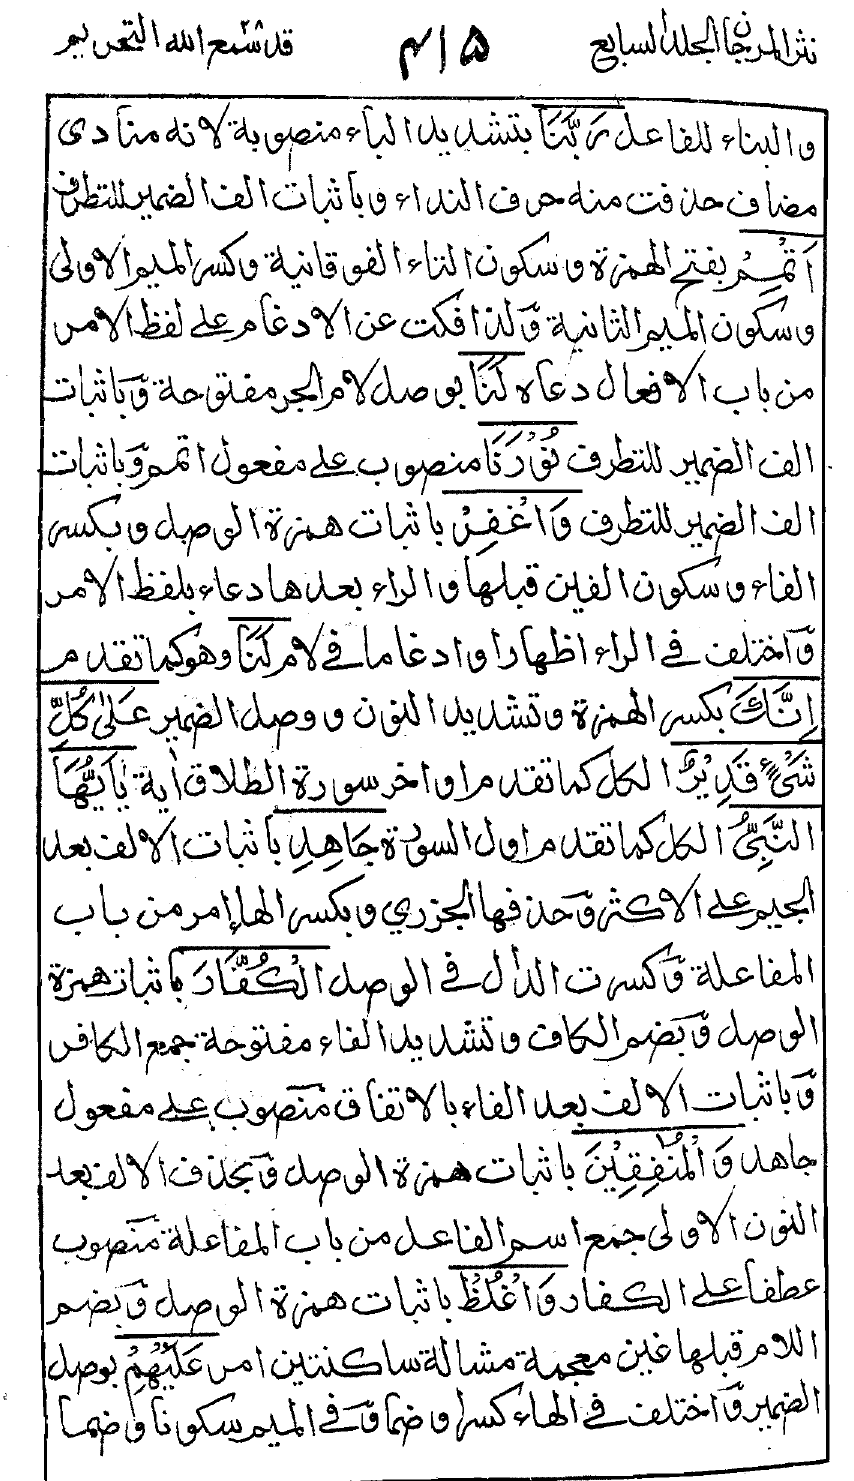 نثر المرجان الجلد السابع ۴۱۵ قد سمع الله ۲۸ التحريم
والبناء للفاعل رَبَّنَا بتشديد الباء منصوبة لانه منادى
مضاف حذفت منه حرف النداء وباثبات الف الضمير للتطرف
اَتْمِمْ بفتح الهمزة وسكون التاء الفوقانية وكسر الميم الاولى
وسكون الميم الثانية ولذا فكت عن الادغام على لفظ الامر
من باب الافعال دعاء لَنَا بوصل لام الجر مفتوحة وباثبات
الف الضمير للتطرف نُوْرَنَا منصوب على مفعول اتمم وباثبات
الف الضمير للتطرف وَاغْفِرْ باثبات همزة الوصل وبكسر
الفاء وسكون الغين قبلها والراء بعدها دعاء بلفظ الامر
واختلف في الراء اظهارا وادغاما في لام لَنَا وهو كما تقدم
اِنَّكَ بكسر الهمزة وتشديد النون ووصل الضمير عَلىٰ كُلِّ
شَىْءٍ قَدِيْرٌ الكل كما تقدم اواخر سورة الطلاق اٰية يٰاَيُّهَا
النَّبِىُّ الكل كما تقدم اول السورة جَاهِدِ باثبات الالف بعد
الجيم على الاكثر وحذفها الجزري وبكسر الهاء امر من باب
المفاعلة وكسرت الدال في الوصل الْكُفَّارَ باثبات همزة
الوصل وبضم الكاف وتشديد الفاء مفتوحة جمع الكافر
وباثبات الالف بعد الفاء بالاتفاق منصوب على مفعول
جاهد وَالْمُنٰفِقِيْنَ باثبات همزة الوصل وبحذف الالف بعد
النون الاولى جمع اسم الفاعل من باب المفاعلة منصوب
عطفا على الكفار وَاغْلُظْ باثبات همزة الوصل وبضم
اللام قبلها غين معجمة مشالة ساكنتين امر عَلَيْهِمْ بوصل
الضمير واختلف في الهاء كسرا وضما وفي الميم سكونا وضما